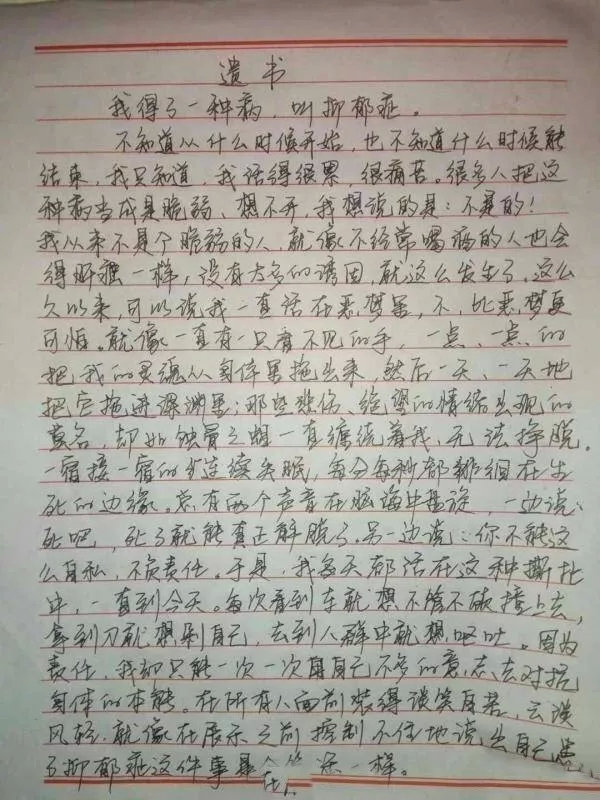 遗书
我得了一种病，叫抑郁症。
不知道从什么时候开始，也不知道什么时候能
结束，我只知道，我活得很累，很痛苦。很多人把这
种病当成是脆弱、想不开，我想说的是：不是的！
我从来不是个脆弱的人，就像不经常喝酒的人也会
得肝癌一样，没有太多的诱因，就这么发生了，这么
久以来，可以说我一直活在恶梦里，不，比恶梦更
可怕。就像一直有一只看不见的手，一点、一点的
把我的灵魂从身体里拖出来，然后一天、一天地
把它拖进深渊里；那些悲伤、绝望的情绪出现的
莫名，却如蚀骨之蛆一直缠绕着我，无法挣脱。
一宿接一宿的连续失眠，每分每秒都徘徊在生
死的边缘。总有两个声音在脑海中盘旋，一边说：
死吧，死了就能真正解脱了。另一边说：你不能这
么自私，不负责任。于是，我每天都活在这种撕扯
中，一直到今天。每次看到车就想不管不顾撞上去，
拿到刀就想剁自己，去到人群中就想呕吐。因为
责任，我却只能一次一次用自己不多的意志去对抗
身体的本能。在所有人面前装得谈笑自若，云淡
风轻，就像在展示之前控制不住地说出自己患
了抑郁症这件事是在一样。